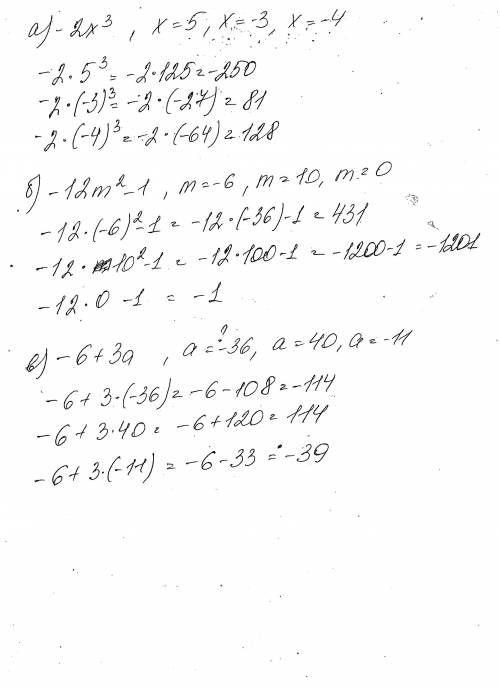 а) -2x³, x=5, x=-3, x=-4
-2·5³=-2·125=-250
-2·(-3)³=-2·(-27)=81
-2·(-4)³=-2·(-64)=128
б) -12m²-1, m=-6, m=10, m=0
-12·(-6)²-1=-12·(-36)-1=431
-12·10²-1=-12·100-1=-1200-1=-1201
-12·0-1=-1
в) -6+3a, a=-36, a=40, a=-11
-6+3·(-36)=-6-108=-114
-6+3·40=-6+120=114
-6+3·(-11)=-6-33=-39